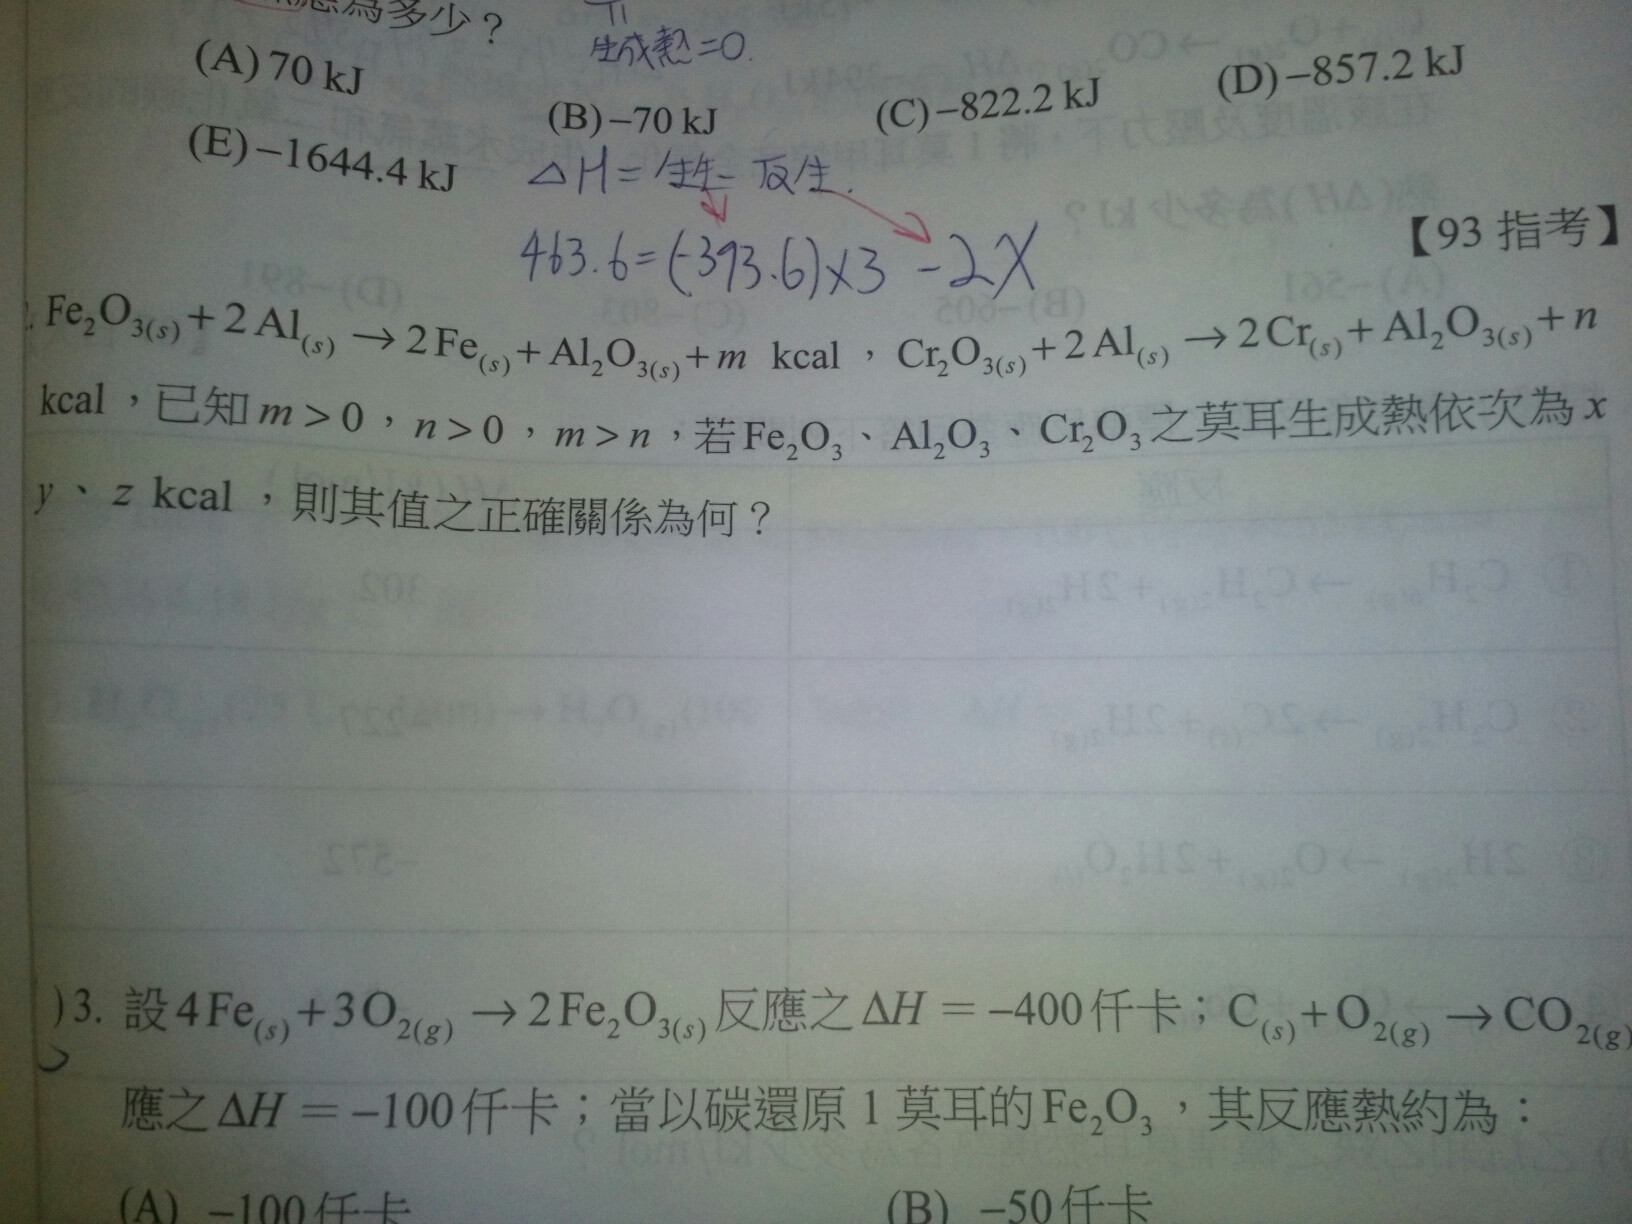 應為多少？
生成熱=0.
(A) 70 kJ (B) –70 kJ (C) –822.2 kJ (D) –857.2 kJ
(E) –1644.4 kJ
△H = 生生 - 反生.
463.6=(-393.6)×3 -2X
【93 指考】
Fe₂O₃(s) + 2Al(s) → 2Fe(s) + Al₂O₃(s) + m kcal，Cr₂O₃(s) + 2Al(s) → 2Cr(s) + Al₂O₃(s) + n
kcal，已知 m > 0，n > 0，m > n，若 Fe₂O₃、Al₂O₃、Cr₂O₃ 之莫耳生成熱依次為 x
y、z kcal，則其值之正確關係為何？
)3. 設 4Fe(s) + 3O₂(g) → 2Fe₂O₃(s) 反應之 ΔH = –400 仟卡；C(s) + O₂(g) → CO₂(g)
應之 ΔH = –100 仟卡；當以碳還原 1 莫耳的 Fe₂O₃，其反應熱約為：
(A) –100 仟卡 (B) –50 仟卡